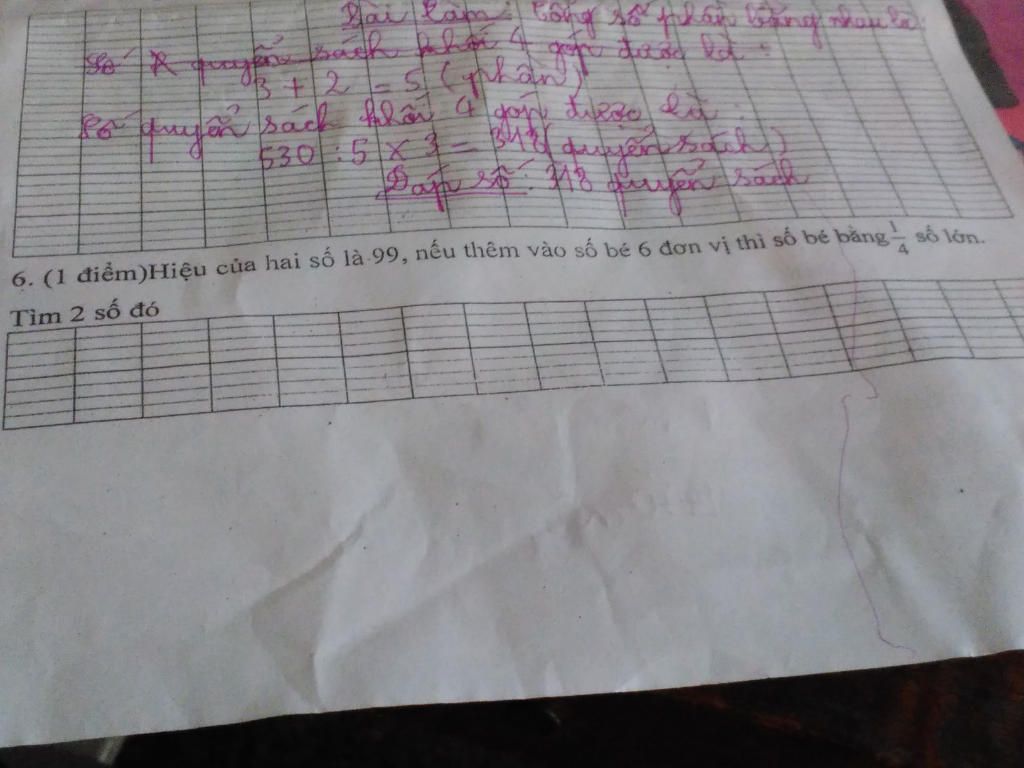 Bài làm: Tổng số phần bằng nhau là:
Số quyển sách khối 4 góp được là:
3 + 2 = 5 (phần)
Số quyển sách khối 4 góp được là:
530 : 5 x 3 = 318 (quyển sách)
Đáp số: 318 quyển sách
6. (1 điểm)Hiệu của hai số là 99, nếu thêm vào số bé 6 đơn vị thì số bé bằng 1/4 số lớn.
Tìm 2 số đó